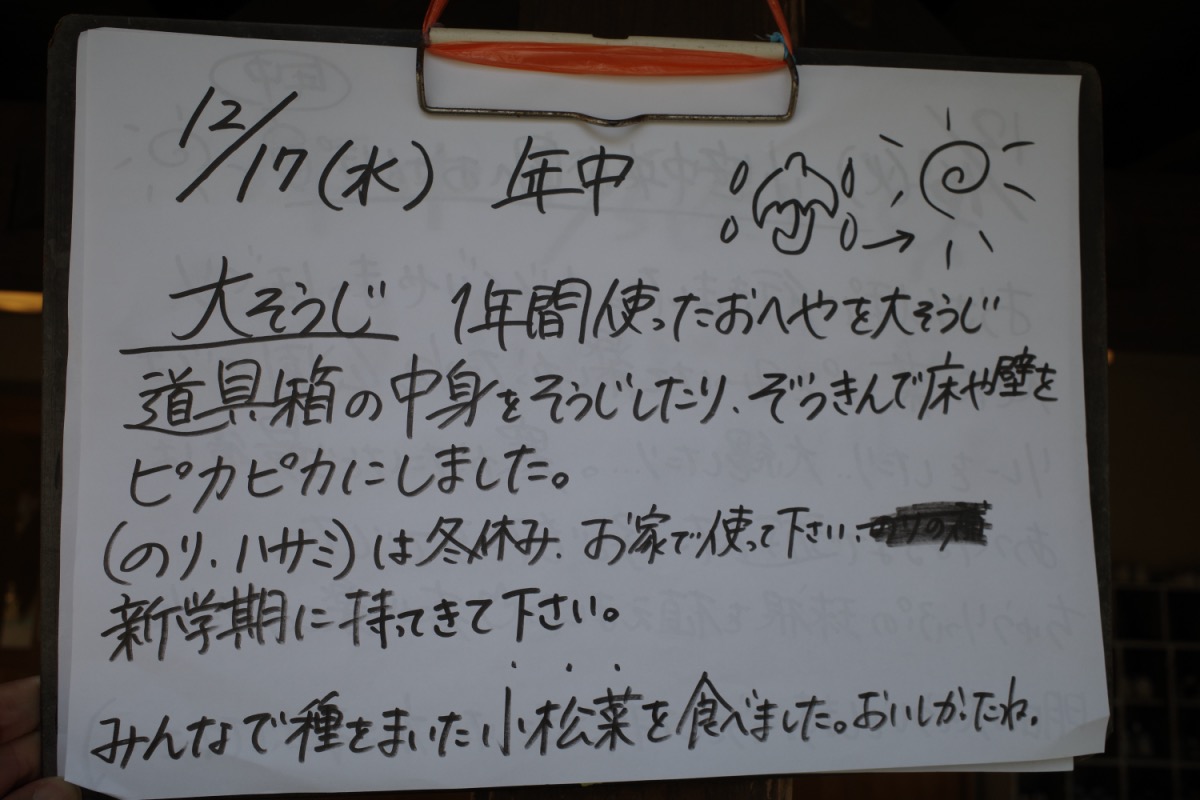 12/17(水) 年中
大そうじ 1年間使ったおへやを大そうじ
道具箱の中身をそうじしたり、ぞうきんで床や壁を
ピカピカにしました。
(のり、ハサミ)は冬休み、お家で使って下さい、
新学期に持ってきて下さい。
みんなで種をまいた小松菜を食べました。おいしかったね。